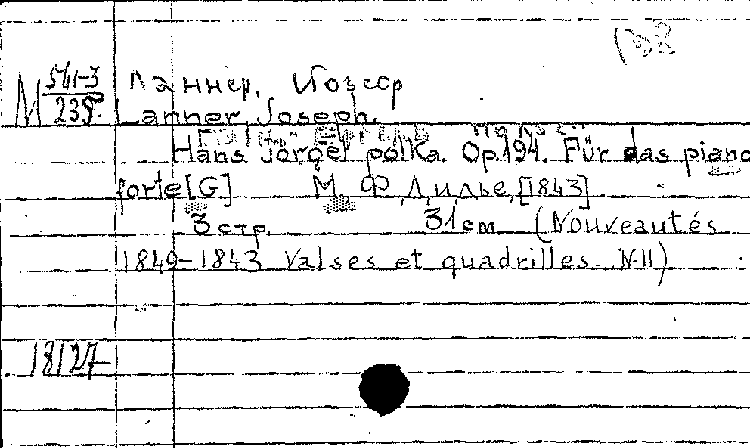 М 561-3
235.
Ланнер, Иозеф
Lanner, Joseph.
Hans Jörgel polka. Op.194. Für das piano
forte [G] М. Ф. Лидье, [1843]
3 стр. 31 см (Nouveautés
1849-1843 Valses et quadrilles N11)
18127